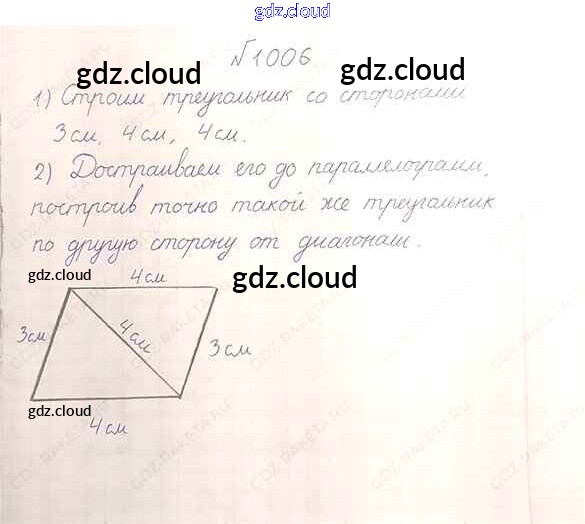 gdz.cloud
№1006
gdz.cloud gdz.cloud
1) Строим треугольник со сторонами
3 см, 4 см, 4 см.
2) Достраиваем его до параллелограмм,
построив точно такой же треугольник
по другую сторону от диагонали.
gdz.cloud 4 см gdz.cloud
3 см 4 см 3 см
gdz.cloud
4 см